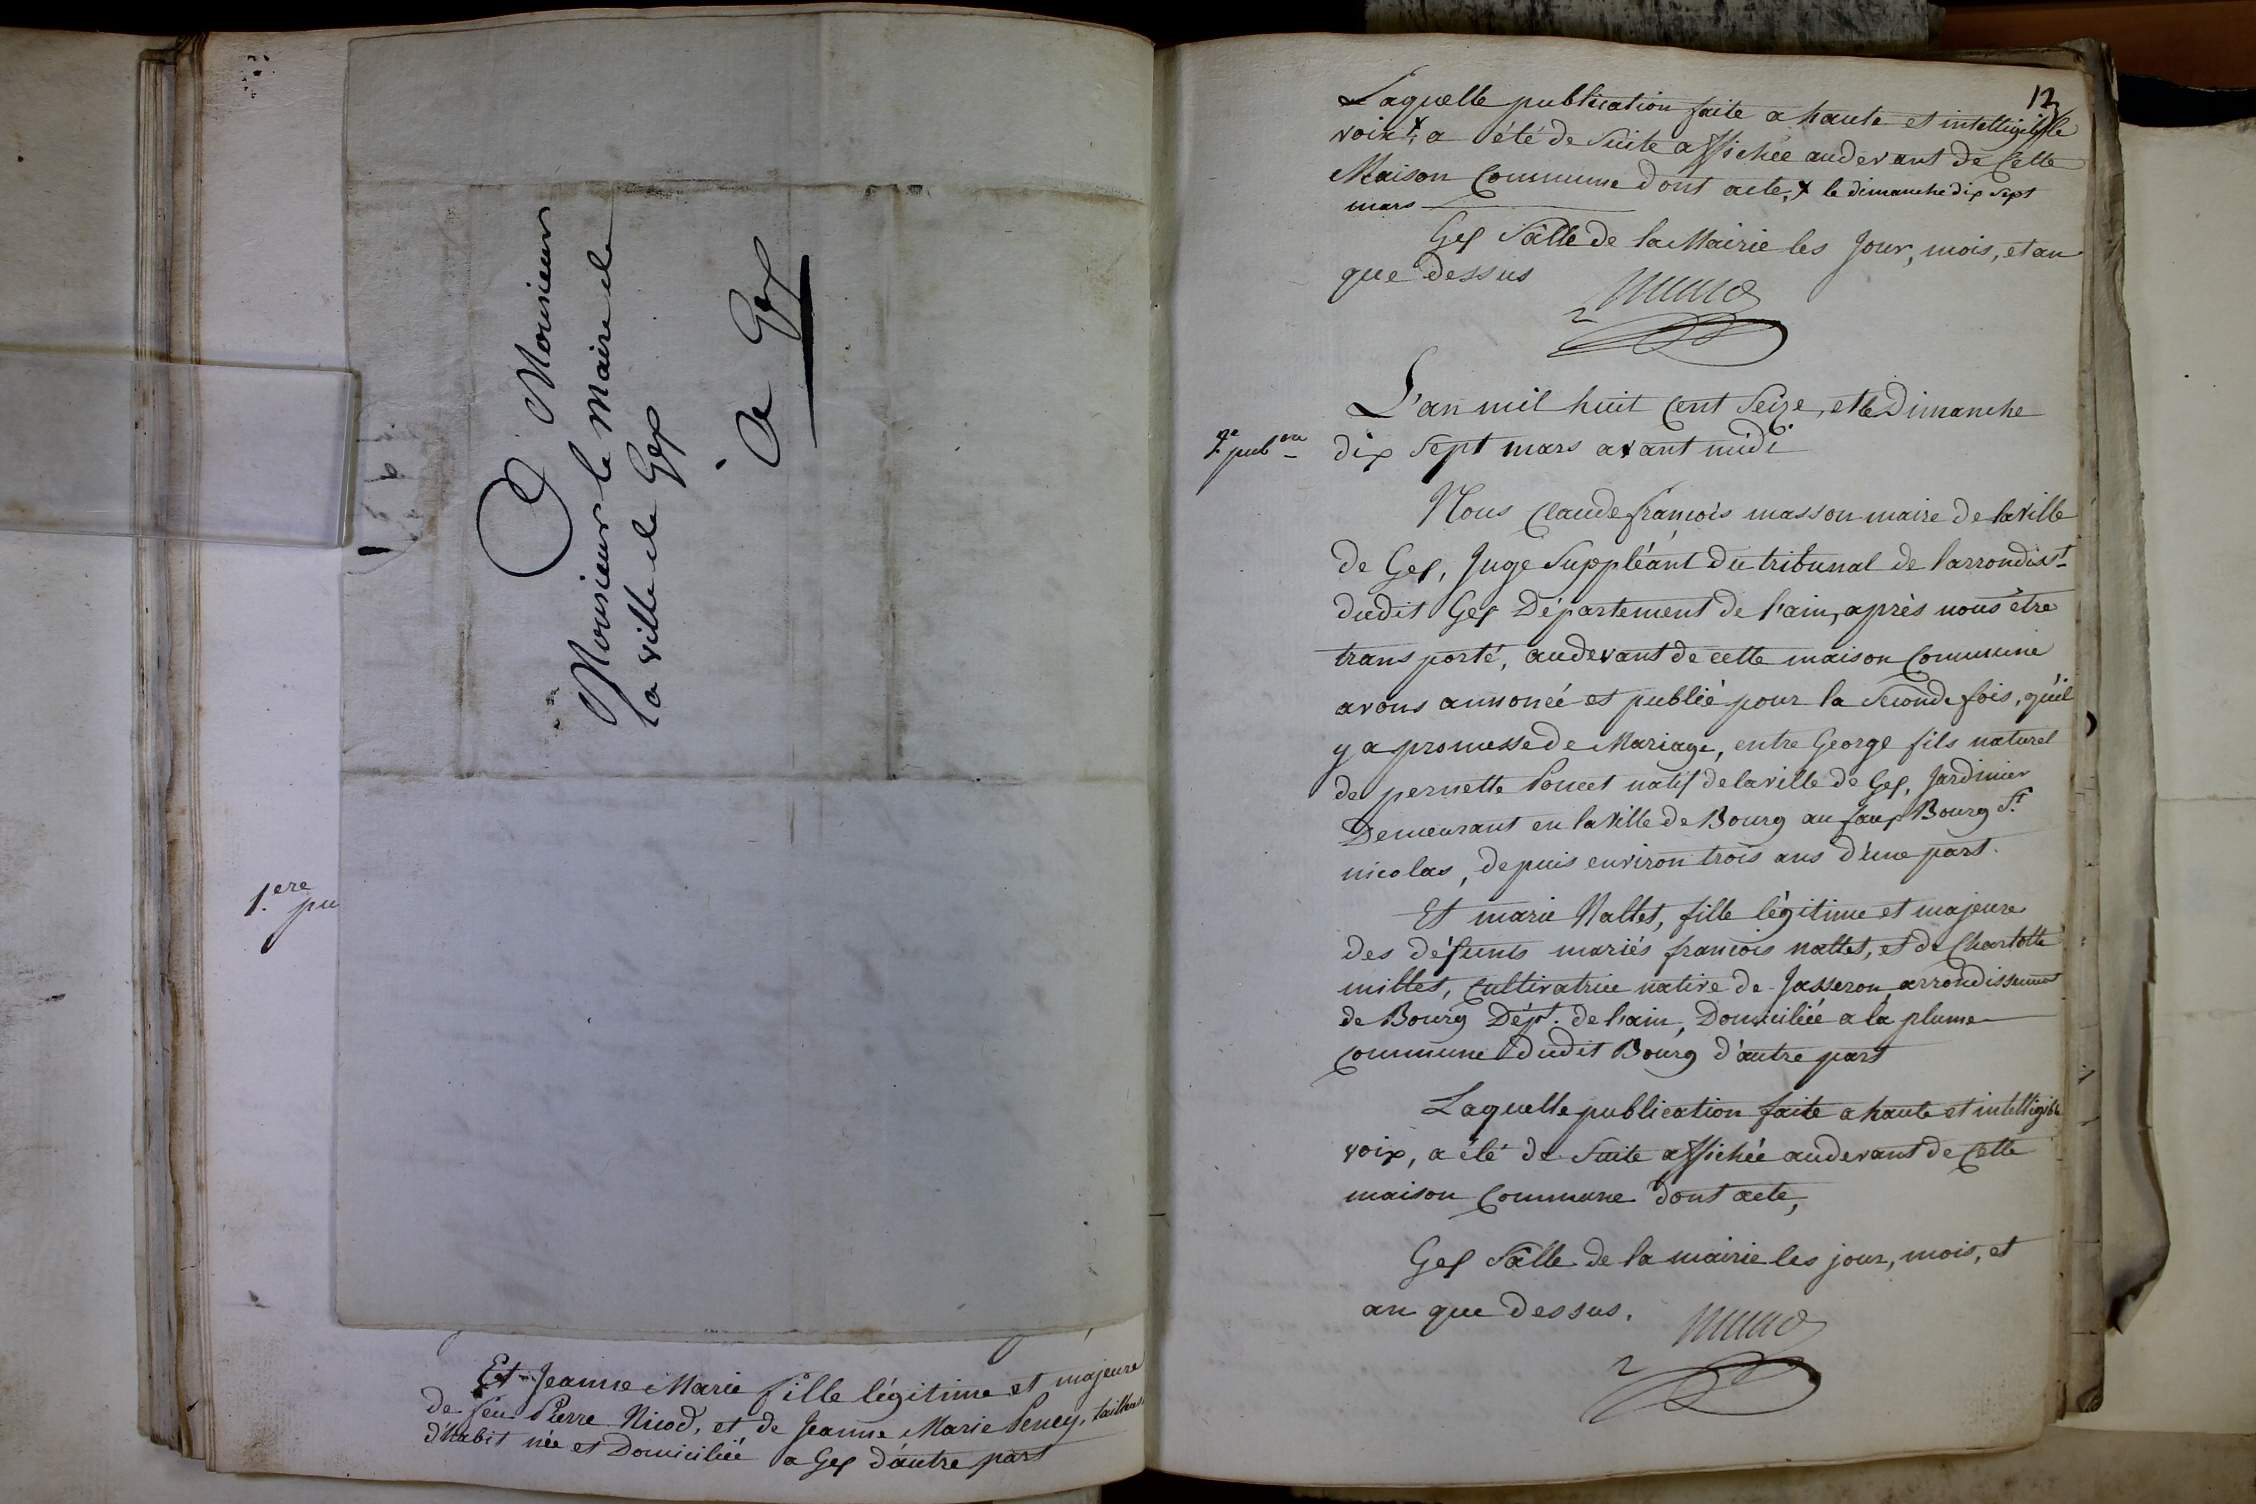 A Monsieur
Monsieur le Maire de
la ville de Gex
à Gex
1.ere pu
Et Jeanne Marie fille légitime et majeure
de feu Pierre Nicod, et de Jeanne Marie Pency, tailleuse
d'habit née et Domiciliée a Gex d'autre part
12
Laquelle publication faite a haute et intelligible
voix, x a été de Suite affichée audevant de Cette
Maison Commune dont acte, x le dimanche dix sept
mars
Gex Sâlle de la Mairie les Jour, mois, et an
que dessus
L'an mil huit Cent Seize, et le Dimanche
2e pubon
dix Sept mars avant midi
Nous Claude françois masson maire de la ville
de Gex, Juge Suppléant du tribunal de l'arrondisst
dudit Gex Département de l'ain, après nous être
transporté, audevant de cette maison Commune
avons annoncé et publié pour la Seconde fois, qu'il
y a promesse de Mariage, entre George fils naturel
de pernette Poncet natif de la ville de Gex, Jardinier
Demeurant en la ville de Bourg au faux Bourg St
nicolas, depuis environ trois ans d'une part.
Et marie Nallet, fille légitime et majeure
des défunts mariés françois nallet, et de Charlotte
millet, Cultivatrice native de Jasseron, arrondissement
de Bourg Dépt. de l'ain, Domiciliée a la plume
Commune dudit Bourg d'autre part
Laquelle publication faite a haute et intelligible
voix, a été de Suite affichée audevant de Cette
maison Commune dont acte,
Gex Sâlle de la mairie les jour, mois, et
an que dessus.